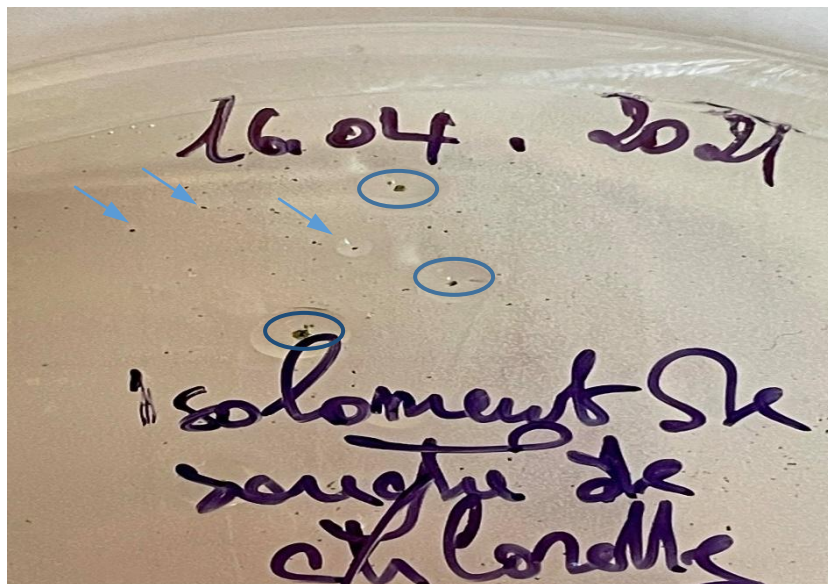 16.04.2021
Isolement de
souche de
chlorelle